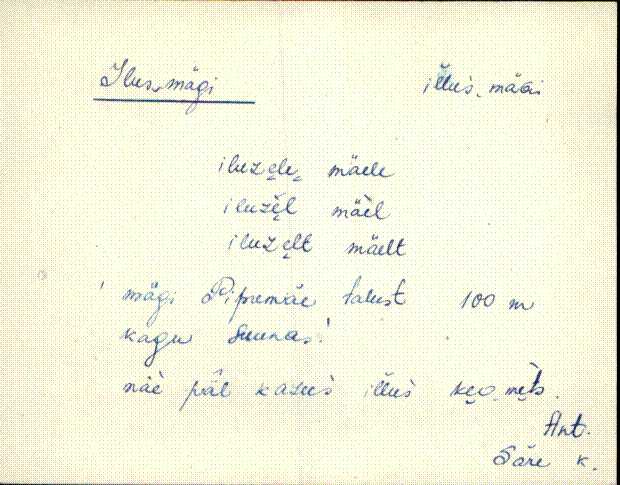 Ilus, mägi illus, mägi
iluzele, mäele
iluzel mäel
iluzelt mäelt
' mägi Pipremäe talust 100 m
kagu suunas.'
mäe päl kazus illus keo, mets.
Ant.
Säre k.